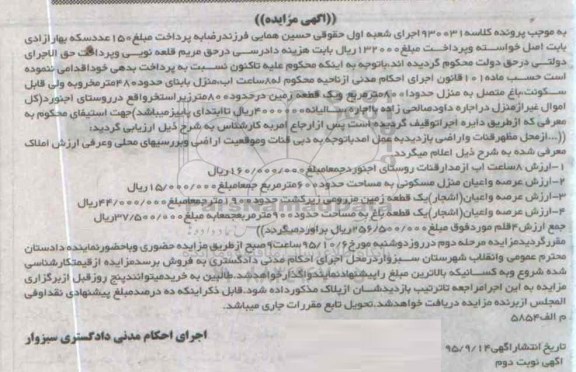 ((آگهی مزایده))
به موجب پرونده کلاسه ۹۳۰۰۳۱ اجرای شعبه اول حقوقی حسین همایی فرزندرضابه پرداخت مبلغ ۱۵۰عددسکه بهار آزادی
بابت اصل خواسته وپرداخت مبلغ ۱۳۲۰۰۰ریال بابت هزینه دادرسی درحق مریم قلعه نویی وپرداخت حق الاجرای
دولتی درحق دولت محکوم گردیده اند.باتوجه به اینکه محکوم علیه تاکنون نسبت به پرداخت بدهی خوداقدامی ننموده
است حسب ماده۱۰۱ قانون اجرای احکام مدنی ازناحیه محکوم له۸ساعت اب،منزل بابنای حدود۴۸۰مترمخروبه ولی قابل
سکونت،باغ متصل به منزل حدودا۸۰۰مترمربع ویک قطعه زمین درحدود۸۰۰مترزیراستخرواقع درروستای اجنورد(کل
اموال غیرازمنزل دراجاره داودصالحی زاده بااجاره سالیانه۴۰۰۰۰۰۰ریال تاابتدای پاییزمیباشد)جهت استیفای محکوم به
معرفی که ازطریق دایره اجراتوقیف گردیده است پس ازارجاع امربه کارشناس به شرح ذیل ارزیابی گردید:
((...ازمحل مظهرقنات واراضی بازدیدبه عمل امدباتوجه به دبی قنات وموقعیت اراضی وبررسیهای محلی وعرفی ارزش املاک
معرفی شده به شرح ذیل اعلام میگردد
۱-ارزش ۸ساعت اب ازمدارقنات روستای اجنوردجمعامبلغ۱۶۰/۰۰۰/۰۰۰ریال
۲-ارزش عرصه واعیان منزل مسکونی به مساحت حدود۶۰۰مترمربع جمعامبلغ۱۵/۰۰۰/۰۰۰ریال
۳-ارزش عرصه واعیان(اشجار)یک قطعه زمین مزروعی زیرکشت حدود۱۱۰۰مترجمعامبلغ۴۴/۰۰۰/۰۰۰ریال
۴-ارزش عرصه واعیان(اشجار)یک قطعه باغ به مساحت حدود۹۰۰مترمربع جمعابه مبلغ۳۷/۵۰۰/۰۰۰ریال
جمع ارزش۴قلم موردفوق مبلغ۲۵۶/۵۰۰/۰۰۰ریال براوردمیگردد))
مقررگردیدمزایده مرحله دوم درروزدوشنبه مورخ۹۵/۱۰/۶ساعت۹صبح ازطریق مزایده حضوری وباحضورنماینده دادستان
محترم عمومی وانقلاب شهرستان سبزواردرمحل اجرای احکام مدنی دادگستری به فروش برسدمزایده ازقیمتکارشناسی
شده شروع وبه کسانیکه بالاترین مبلغ راپیشنهادنمایندواگذارخواهدشد طالبین به خریدمیتوانندپنج روزقبل ازبرگزاری
مزایده به این اجرامراجعه تاترتیب بازدیدشان ازپلاک مذکورداده شود.قابل ذکراینکه ده درصدمبلغ پیشنهادی نقداوفی
المجلس ازبرنده مزایده دریافت خواهدشد.تحویل تابع مقررات جاری میباشد.
م الف۵۸۵۴
اجرای احکام مدنی دادگستری سبزوار
تاریخ انتشارآگهی۹۵/۹/۱۴
آگهی نوبت دوم